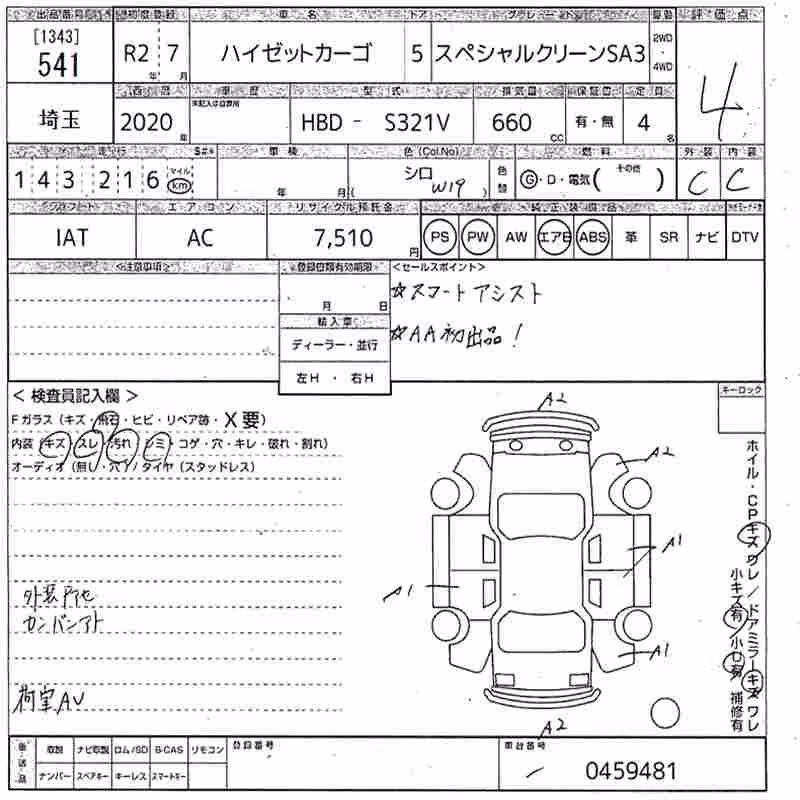 出品番号 初度登録 車名 ドア グレード 駆動 評価点
[1343]
541
R2 7 年 月
ハイゼットカーゴ
5
スペシャルクリーンSA3
2WD・4WD
4
西暦 車歴 型式 排気量 保証書 定員
埼玉
2020 年
未記入は自家用
HBD - S321V
660 CC
有・無
4 名
走行 S#* 車検 色(Col.No) 燃料 外装 内装
143 216 マイル km
年 月(
シロ W19 )
色替
G・D・電気( その他 )
C C
シフト エアコン リサイクル預託金 純正装備品
IAT
AC
7,510 円
PS PW AW エアB ABS 革 SR ナビ DTV
<注意事項>
登録書類有効期限
月 日
輸入車
ディーラー・並行
左H ・ 右H
<セールスポイント>
☆スマートアシスト
☆AA初出品!
<検査員記入欄>
Fガラス(キズ・飛石・ヒビ・リペア跡・X要)
内装(キズ・スレ・汚れ・シミ・コゲ・穴・キレ・破れ・割れ)
オーディオ(無し・穴)/タイヤ(スタッドレス)
外装アセ
カンバンアト
荷室AU
キーロック
A2
A2
A1
A1
A1
A2
ホイル・CPキズワレ/ドアミラーキズワレ
小キズ有/小U有/補修有
取説 ナビ取説 ロム/SD B-CAS リモコン
ナンバー スペアキー キーレス スマートキー
登録番号
車台番号
- 0459481